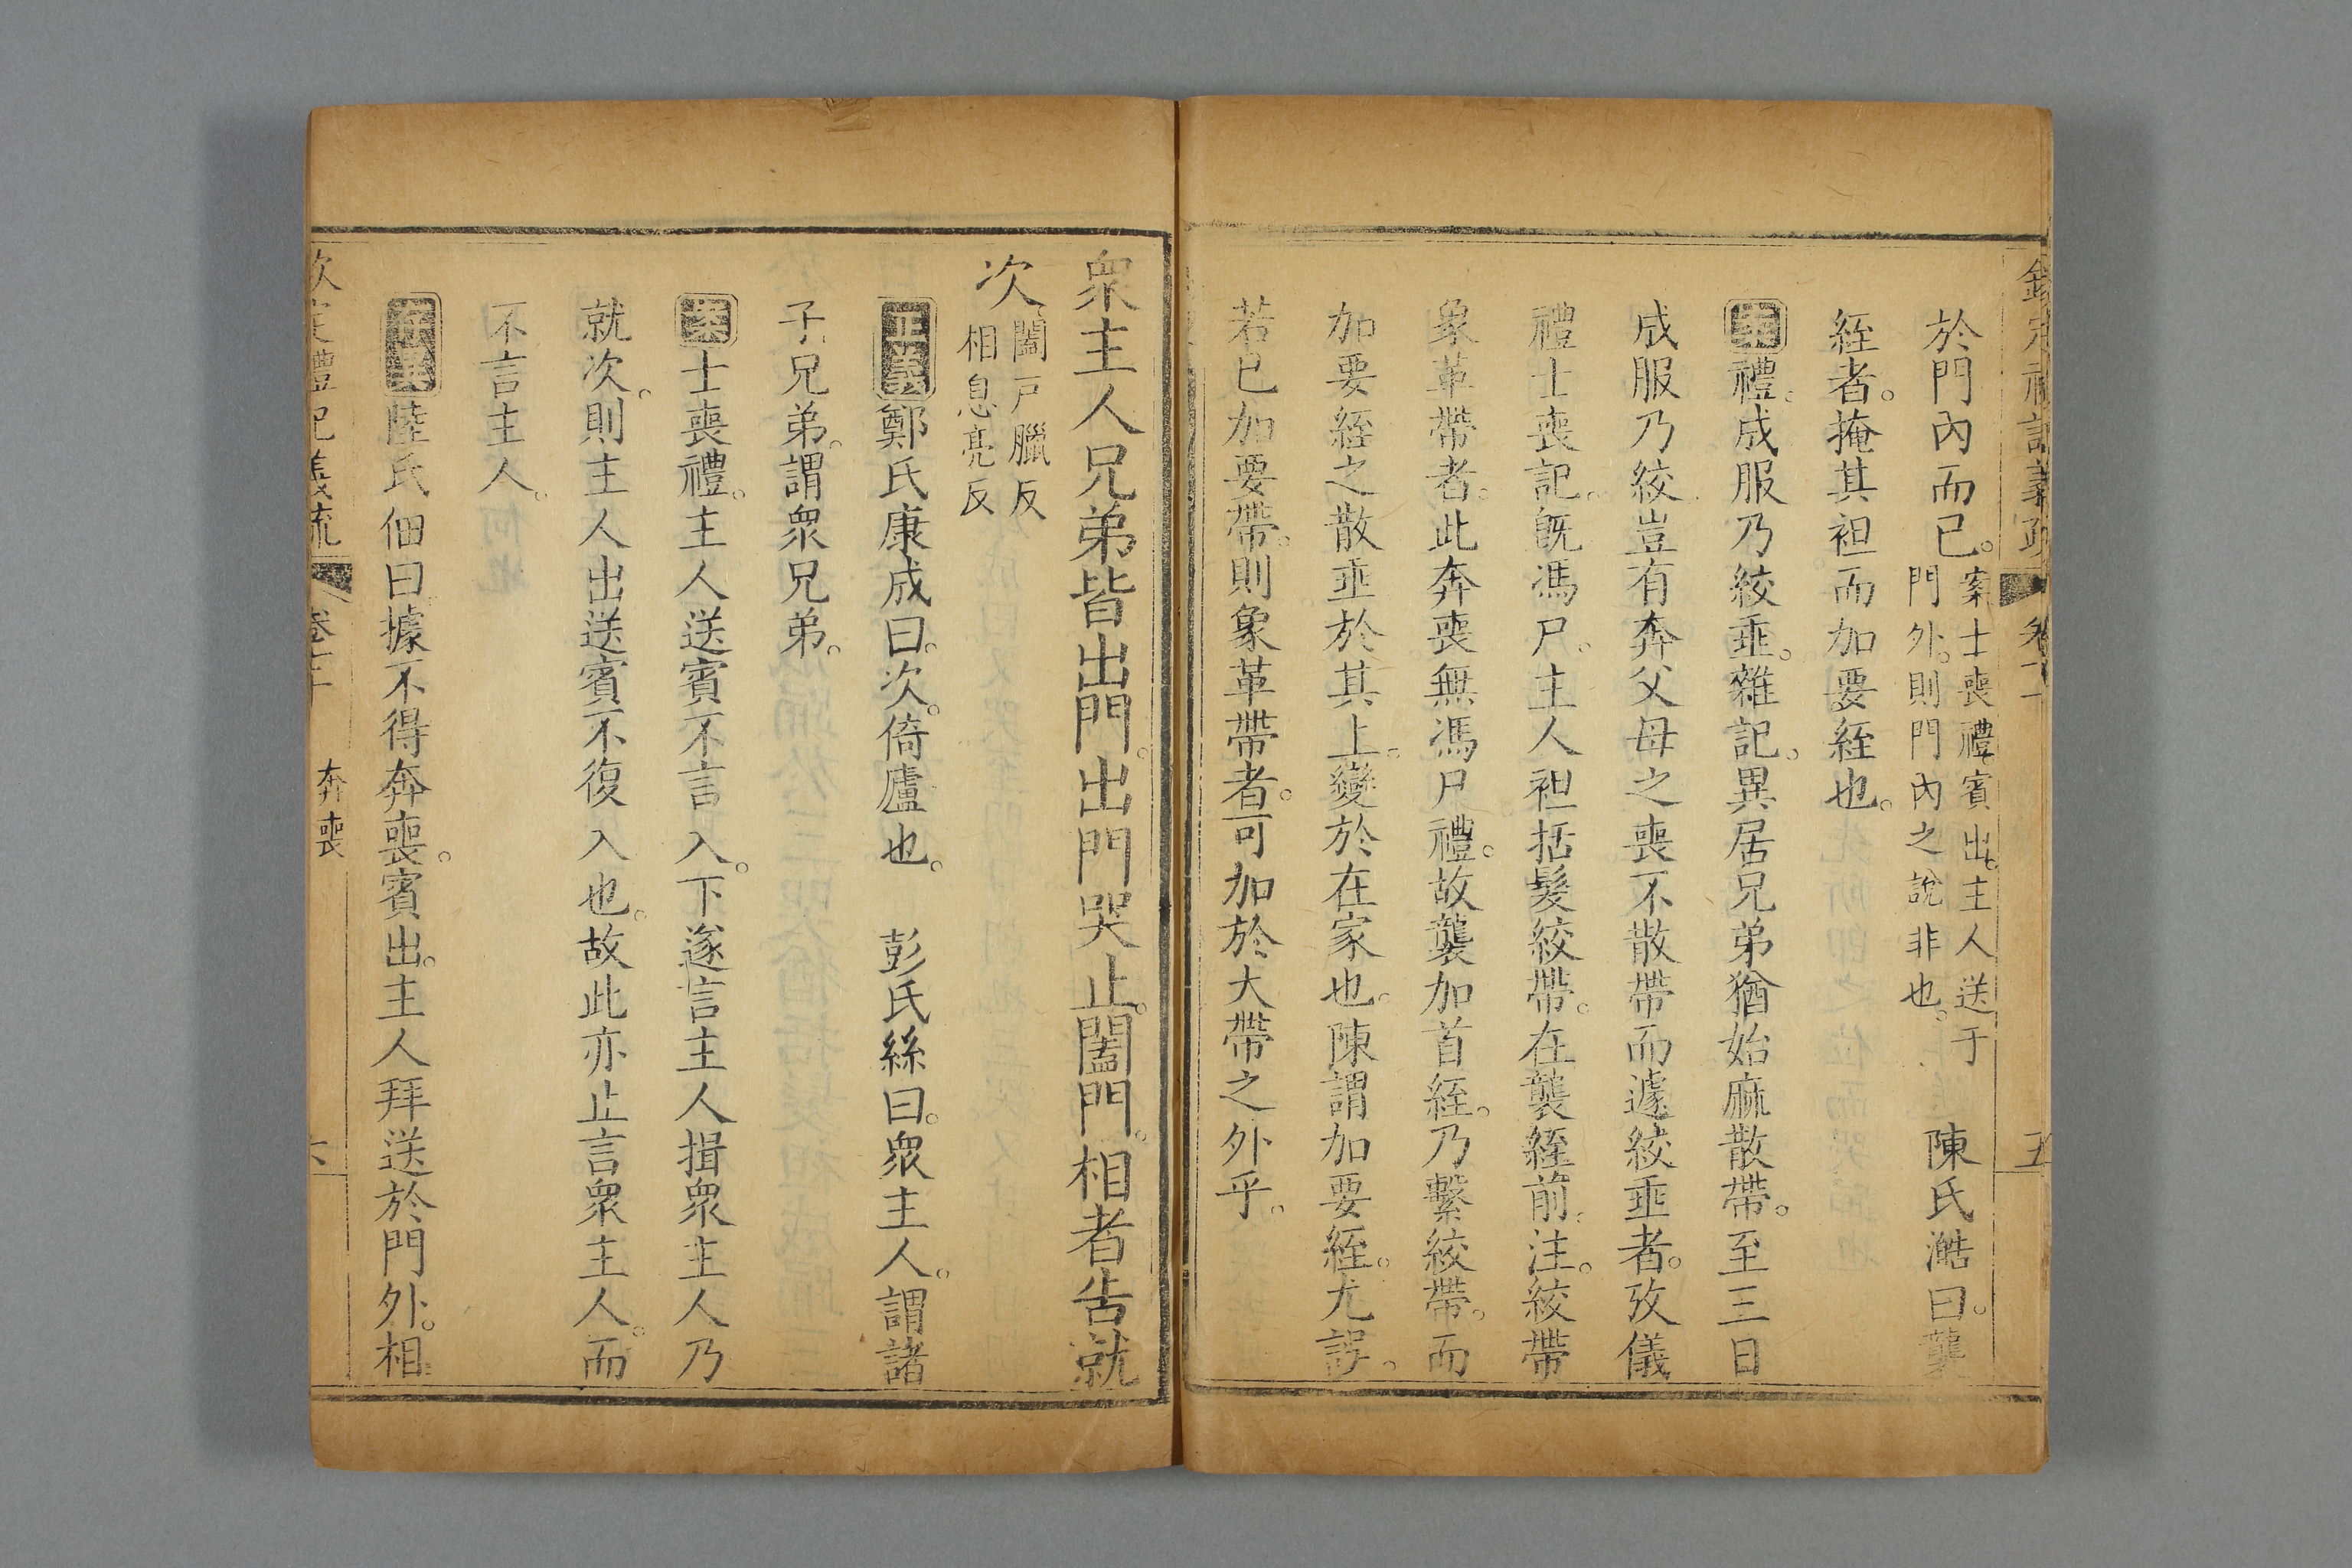 於門內而已。案士喪禮。賓出。主人送于
門外。則門內之說非也。陳氏澔曰。襲
絰者。掩其袒而加要絰也。
案禮。成服乃絞垂。雜記。異居兄弟猶始麻散帶。至三日
成服乃絞豈有奔父母之喪不散帶而遽絞垂者。攷儀
禮士喪記。旣馮尸。主人袒括髮絞帶。在襲絰前。注。絞帶
象革帶者。此奔喪無馮尸禮。故襲加首絰。乃繫絞帶。而
加要絰之散垂於其上。變於在家也。陳謂加要絰。尤誤。
若已加要帶。則象革帶者。可加於大帶之外乎。
衆主人兄弟皆出門。出門哭止。闔門。相者告就
次。闔戸臘反
相息亮反
正義鄭氏康成曰。次。倚廬也。 彭氏絲曰。衆主人。謂諸
子。兄弟。謂衆兄弟。
案士喪禮。主人送賓不言入。下遂言主人揖衆主人乃
就次。則主人出送賓不復入也。故此亦止言衆主人。而
不言主人。
存異陸氏佃曰據不得奔喪。賓出。主人拜送於門外。相
欽定禮記義疏 卷 奔喪 六